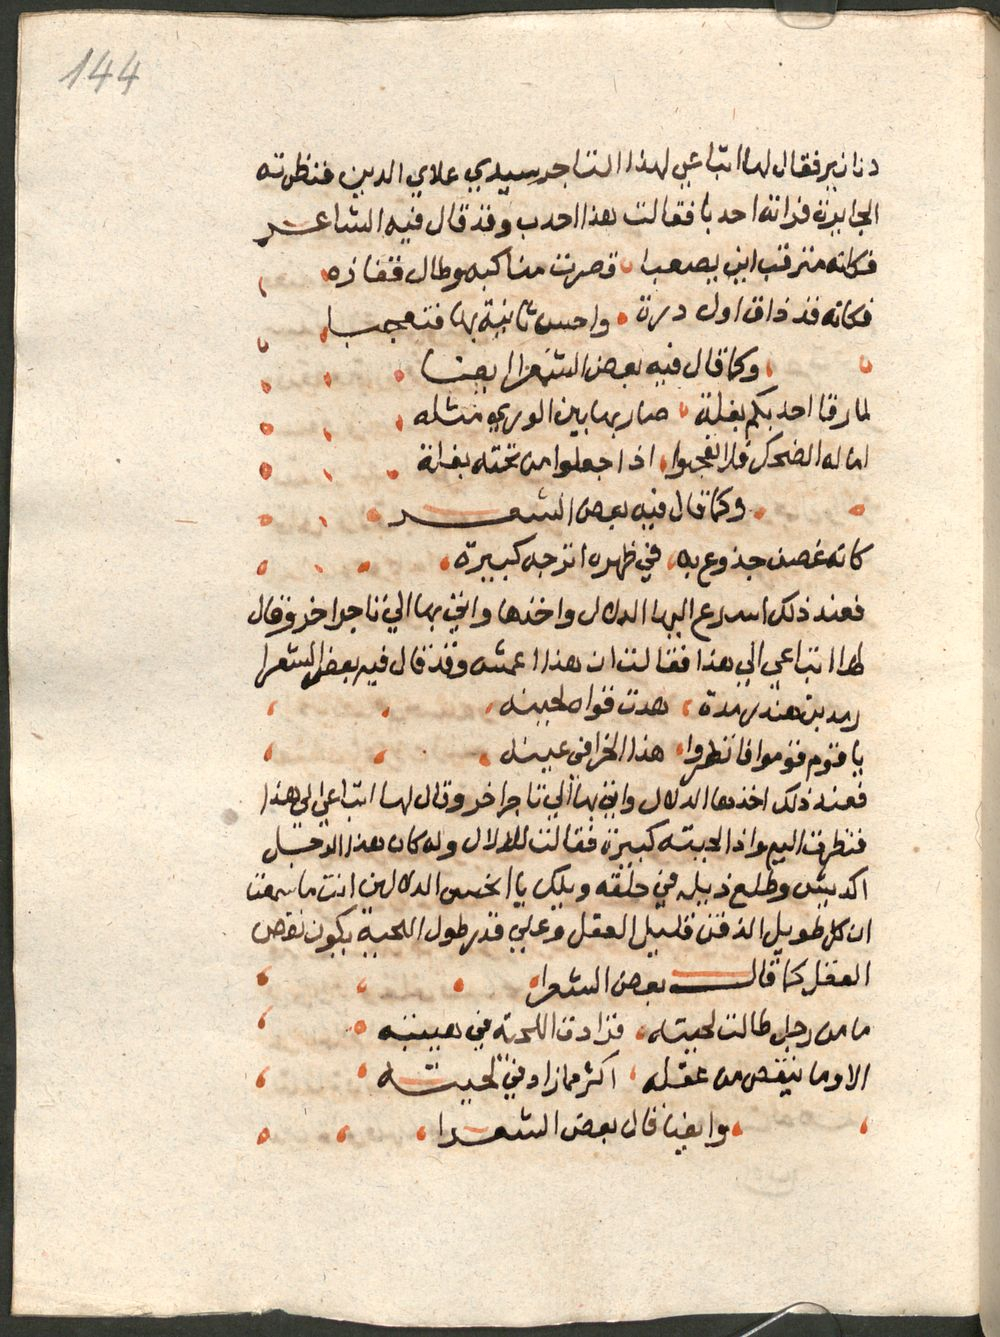 144
دنانير فقال لها اتباعي لهذا التاجر سيدي علاي الدين فنظرته
الجايرية فراته احدبا فقالت هذا احدب وقد قال فيه الشاعر
فكانه مترقب اين يصعبا قصرت مناكبه وطال قفازه
فكانه قد ذاق اول درة واحس ثانية بها فتعجبا
وكما قال فيه بعض الشعرا ايضا
لما رقا احدبكم بغلة صار بها بين الوري مثله
اما له الضحك فلا تعجبوا اذا جعلوا من تحته بغلة
وكما قال فيه بعض الشعر
كانه غصن جذوع به في ظهره اترجه كبيرة
فعند ذلك اسرع اليها الدلال واخذها واتي بها الي تاجر اخر وقال
لها اتباعي الي هذا فقالت ان هذا اعمشه وقد قال فيه بعض الشعرا
رمد به هدت قواه لحينه
يا قوم قوموا فانظروا هذا الخرا في عينه
فعند ذلك اخذها الدلال واتي بها الي تاجر اخر وقال لها اتباعي لي هذا
فنظرت اليه واذا لحيته كبيرة فقالت للدلال وله كان هذا الرجل
اكديش وطلع ذيله في حلقه ويلك يا انحس الدلالين انت ما سمعت
ان كل طويل الذقن قليل العقل وعلي قدر طول اللحية يكون نقص
العقل كما قال بعض الشعرا
ما من رجل طالت لحيته فزادت اللحية في هيبته
الا وما ينقص من عقله اكثر مما زاد في لحيته
وايضا قال بعض الشعرا